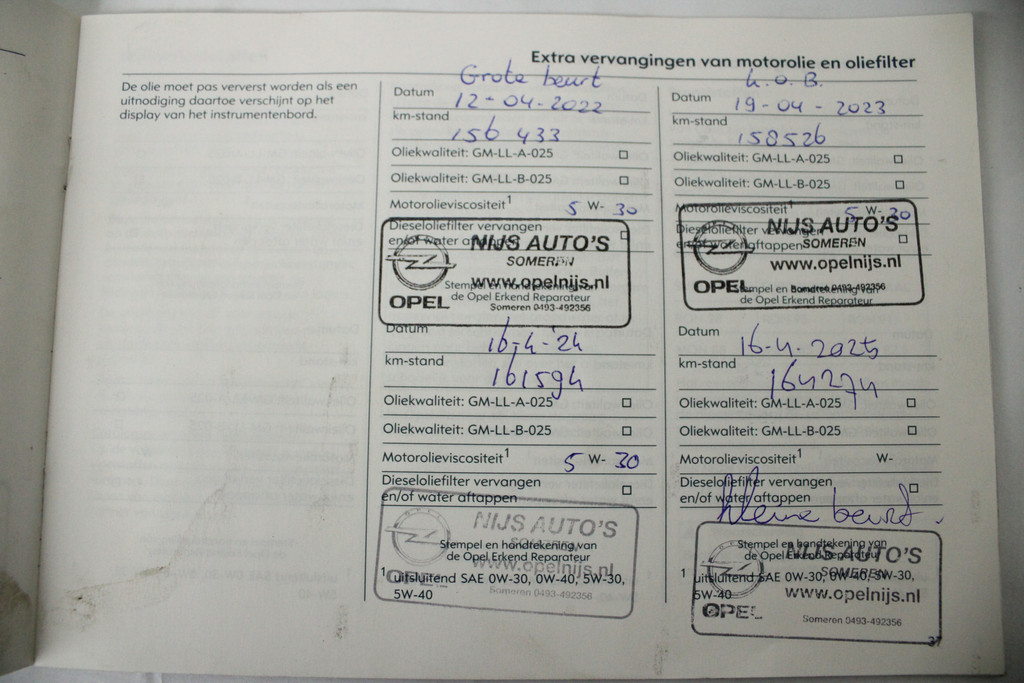 Extra vervangingen van motorolie en oliefilter
De olie moet pas ververst worden als een
uitnodiging daartoe verschijnt op het
display van het instrumentenbord.
Grote beurt
Datum 12-04-2022
km-stand
156 433
Oliekwaliteit: GM-LL-A-025
Oliekwaliteit: GM-LL-B-025
Motorolieviscositeit1 5 W- 30
Dieseloliefilter vervangen
en/of water aftappen
NIJS AUTO'S
SOMEREN
www.opelnijs.nl
OPEL
Stempel en handtekening van
de Opel Erkend Reparateur
Someren 0493-492356
K.O.B.
Datum 19-04-2023
km-stand
158526
Oliekwaliteit: GM-LL-A-025
Oliekwaliteit: GM-LL-B-025
Motorolieviscositeit1 5 W- 30
Dieseloliefilter vervangen
en/of water aftappen
NIJS AUTO'S
SOMEREN
www.opelnijs.nl
OPEL
Stempel en handtekening van
de Opel Erkend Reparateur
Someren 0493-492356
Datum
16-4-'24
km-stand
161594
Oliekwaliteit: GM-LL-A-025
Oliekwaliteit: GM-LL-B-025
Motorolieviscositeit1 5 W- 30
Dieseloliefilter vervangen
en/of water aftappen
NIJS AUTO'S
SOMEREN
Stempel en handtekening van
de Opel Erkend Reparateur
www.opelnijs.nl
OPEL
1 uitsluitend SAE 0W-30, 0W-40, 5W-30,
5W-40
Someren 0493-492356
Datum
16-4-2025
km-stand
164274
Oliekwaliteit: GM-LL-A-025
Oliekwaliteit: GM-LL-B-025
Motorolieviscositeit1 W-
Dieseloliefilter vervangen
en/of water aftappen
kleine beurt.
Stempel en handtekening van
de Opel Erkend Reparateur
NIJS AUTO'S
SOMEREN
1 uitsluitend SAE 0W-30, 0W-40, 5W-30,
5W-40
www.opelnijs.nl
OPEL
Someren 0493-492356
37